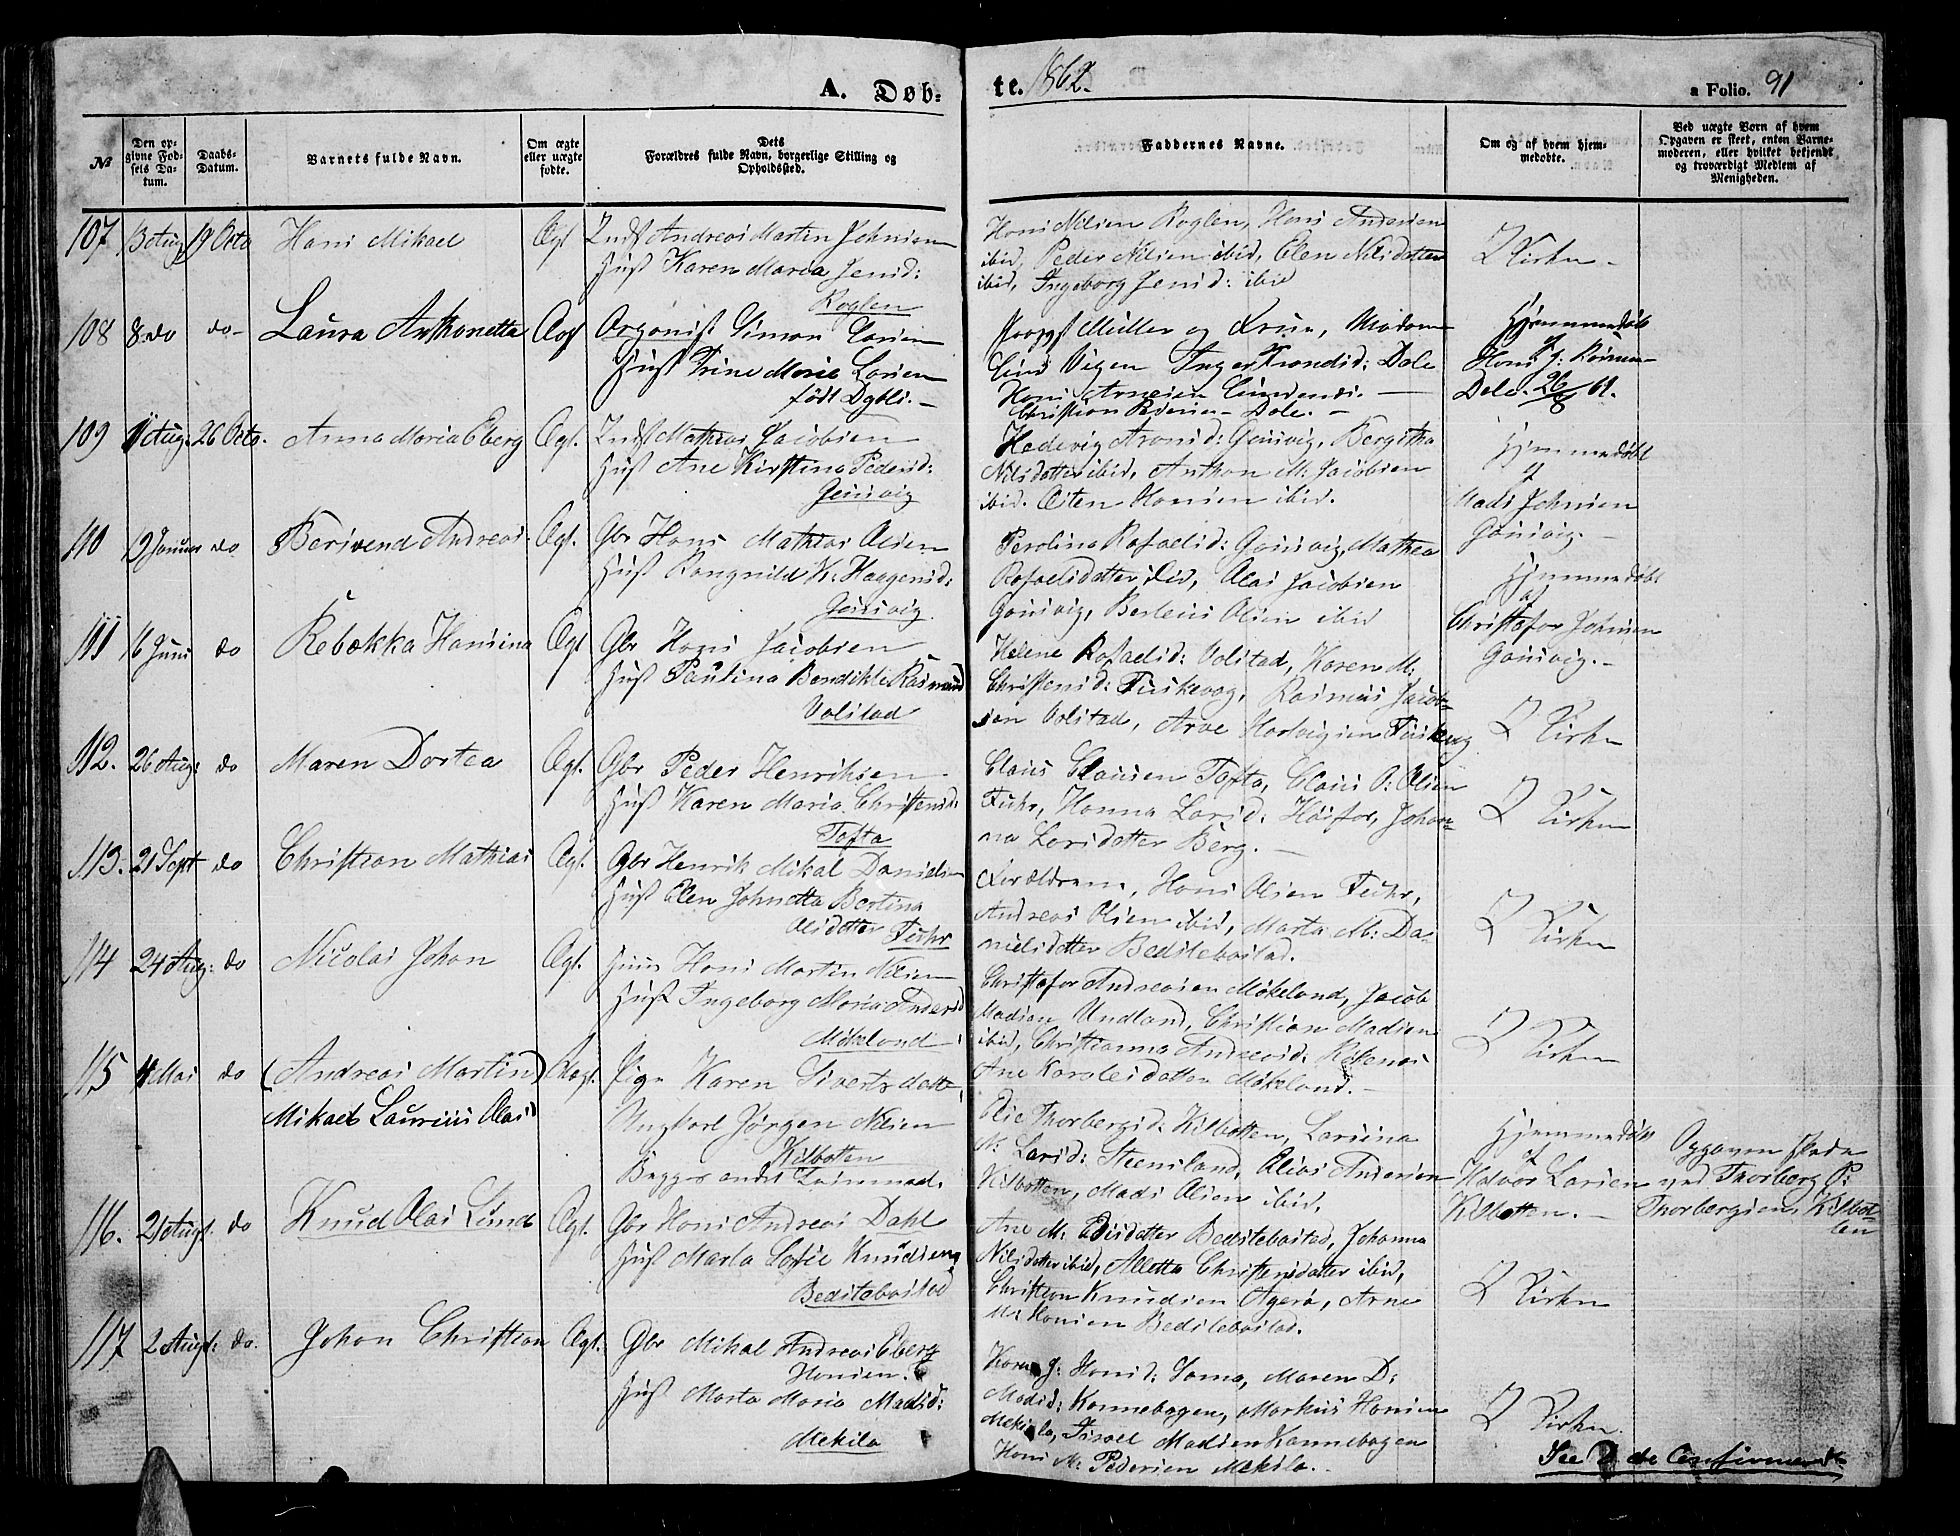 A. Døb-
te. 1862.
a Folio. 91
№
Den op-
givne Fød-
sels Da-
tum.
Daabs-
Datum.
Barnets fulde Navn.
Om ægte
eller uægte
fødte.
Dets
Forældres fulde Navn, borgerlige Stilling og
Opholdssted.
Faddernes Navne.
Om og af hvem hjem-
medøbte.
Ved uægte Born af hvem
Opgaven er skeet, enten Barne-
moderen, eller hvilket bekjendt
og troværdigt Medlem af
Menigheden.
107 Aug 19 Octo Hans Mikael Ægt Indst Andreas Martin Johnsen
Hust Karen Maria Jensd:
Roglen
Hans Nilsen Roglen, Hans Andersen
ibid, Peder Nilsen ibid, Elen Nilsdatter
ibid, Ingeborg Jensd: ibid
I Kirken
108 8 do do- Laura Anthonetta Ægt Organist Simon Larsen
Hust Trine Marie Larsen
født Dybli.-
Müller og Krun, Madam
Vigen Inger Trondsd: Dale
Hans Arnesen
Christian Pedersen Dale.-
Hjemmedøbt
af
Hans J:
Dale. 26/8 61.
109 1 Aug. 26 Octo. Anna Maria Eberg Ægt. Indst Mathias Jacobsen
Hust Ane Kirstina Pedersd:
Gausvig
Hedevig Aronsd: Gausvig, Bergitha
Nilsdatter ibid, Anthon M: Jacobsen
ibid. Hansen ibid.
Hjemmedøbt
af
Mads Johnsen
Gausvig.-
110 19 Januar do Berivend Andreas Ægt. Gbr Hans Mathias Olsen
Hust Rangnild K: Haagensd:
Gausvig
Perolina Rafaelsd: Gausvig, Mathea
Rafaelsdatter ibid, Olai Jacobsen
Gausvig, Berleus Olsen ibid
Hjemmedøbt
af
Christofer Johnsen
Gausvig.-
111 16 Juni do Rebekka Hansina Ægt Gbr Hans Jacobsen
Hust Paulina Bendikte Rasmusd
Volstad
Helene Rafaelsd: Volstad, Karen M:
Christensd: Fuskevog, Rasmus Jacob-
sen Volstad, Arne Hartvigsen Fuskevog
I Kirken
112. 26 Aug: do Maren Dortea Ægt. Gbr Peder Henriksen
Hust Karen Maria Christensd:
Tofta
Claus Clausen Tofta, Claus P: Olsen
Fuhr, Hanna Larsd: Johan-
na Larsdatter Berg.-
I Kirken
113. 21 Sept do Christian Mathias Ægt. Gbr Henrik Mikal Danielsen
Hust Elen Johnetta Bertina
Olsdatter Fuhr
Forældrene, Hans Olsen Fuhr,
Andreas Olsen ibid, Marta M: Da-
nielsdatter Bedstebostad.
I Kirken
114 24 Aug: do Nicolai Johan Ægt. Huus Hans Martin Nilsen
Hust Ingeborg Maria Andersd
Møkeland
Christofer Andreasen Møkeland, Jacob
Madsen Undland, Christian Madsen
ibid, Christianna Andreasd: Røkenes
Ane Karolesdatter Møkeland.-
I Kirken
115 4 Mai do (Andreas Martin)
Mikael Laurius Olai
Uægt. Pige Karen Sivertsdatter
Ungkarl Jørgen Nilsen
Kilbotten
Begges andet Leiermaal.
Elie Thorbergsd: Kilbotten, Larsina
N: Larsd: Steensland, Olias Andersen
Kilbotten, Mads Olsen ibid.
Hjemmedøbt
af
Halvor Larsen
Kilbotten.-
Opgaven skede
ved Thorberg P:
Thorbergsen Kilbot-
ten
116. 21 Augt. do Knud Olai Lund Ægt. Gbr Hans Andreas Dahl
Hust Marta Sofie Knudsen
Bedstebostad
Ane M: Edisdatter Bedstebostad, Johanna
Nilsdatter ibid, Aletta Christensdatter ibid,
Christian Knudsen Agerø, Arne
M: Hansen Bedstebostad.
I Kirken
117 2 Augt: do. Johan Christian Ægt. Gbr Mikal Andreas Eberg
Hansen.
Hust Marta Maria Madsd:
Mekila
Karen J: Hansd: Sama, Maren D:
Madsd: Kannebogen, Markus Hansen
Mekila, Israel Madsen Kannebogen
Hans M: Pedersen Mekila.-
I Kirken.